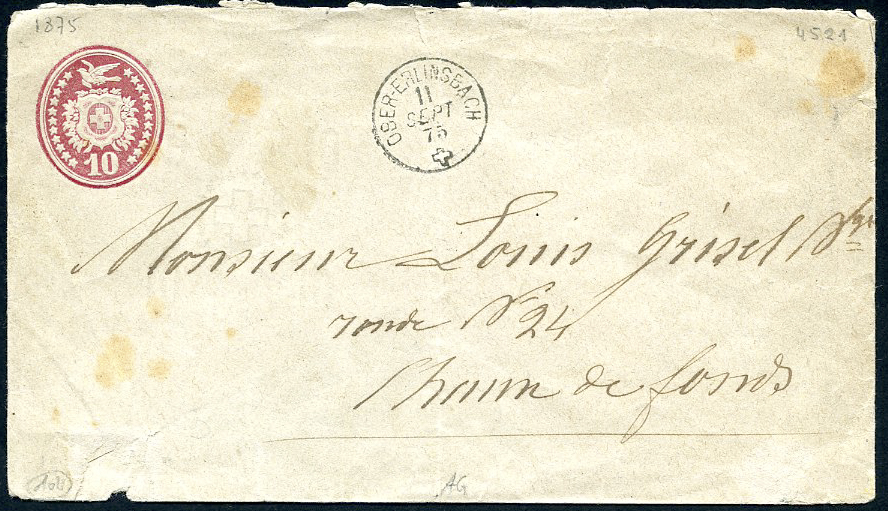 1875
4521
10
OBER-ERLINSBACH
11
SEPT
75
Monsieur Louis Grisel
ronde No 24
Chaux de fonds
AG